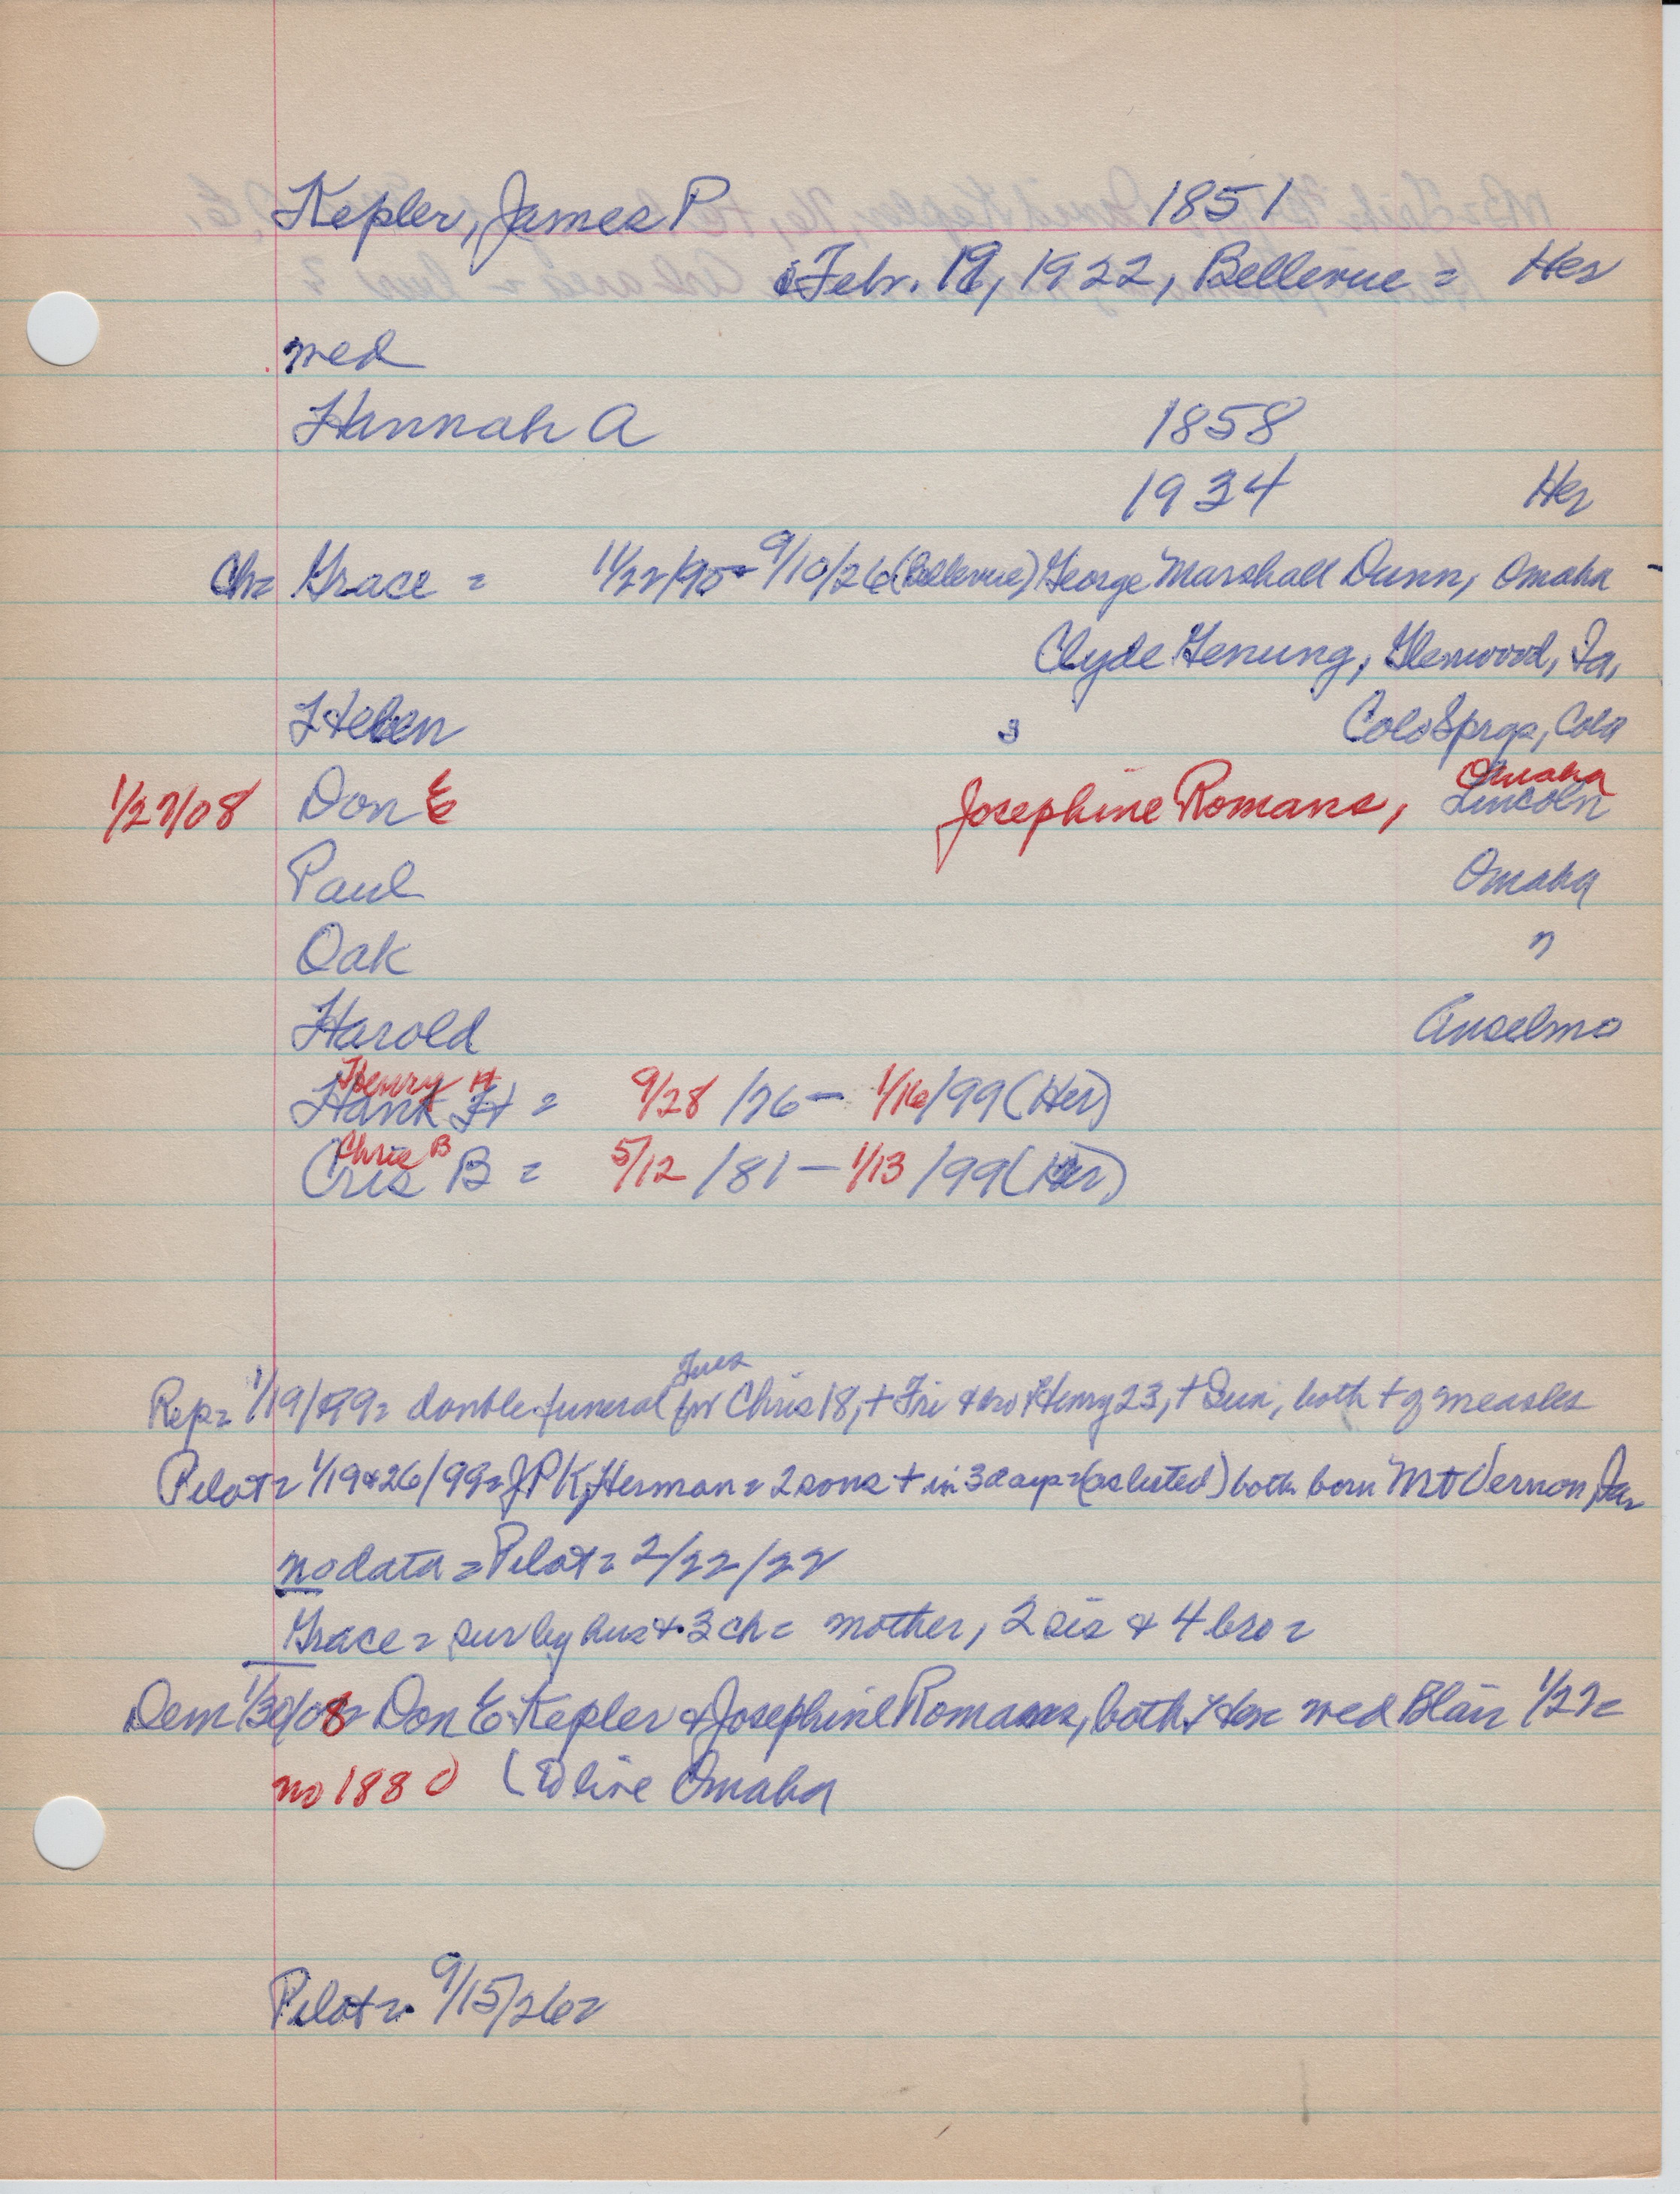 Kepler, James P 1851
Febr. 19, 1922, Bellevue = Her
med
Hannah A 1858
1934 Her
Ch= Grace = 11/22/90 - 9/10/26 (Bellevue) George Marshall Dunn, Omaha -
Clyde Genung, Glenwood, Ia,
Helen Colo Sprgs, Colo
Omaha
1/27/08 Don E Josephine Romans, Lincoln
Paul Omaha
Oak "
Harold Anselmo
Henry H
Hank H = 9/28/76 - 1/16/99 (Her)
Chris B
Cris B = 5/12/81 - 1/13/99 (Her)
Tues
Rep= 1/19/99= double funeral for Chris 18, + Fri & bro Henry 23, + Sun, both + of measles
Pilot= 1/19&26/99= JPK, Herman= 2 sons + in 3 days= (as listed) both born Mt Vernon, Ia=
no data = Pilot= 2/22/22
Grace = sur by hus & 3 ch= mother, 2 sis & 4 bro=
Dem 1/30/08= Don E Kepler & Josephine Romans, both Her= med Blair 1/27=
no 1880 (to live Omaha
Pilot= 9/15/26=